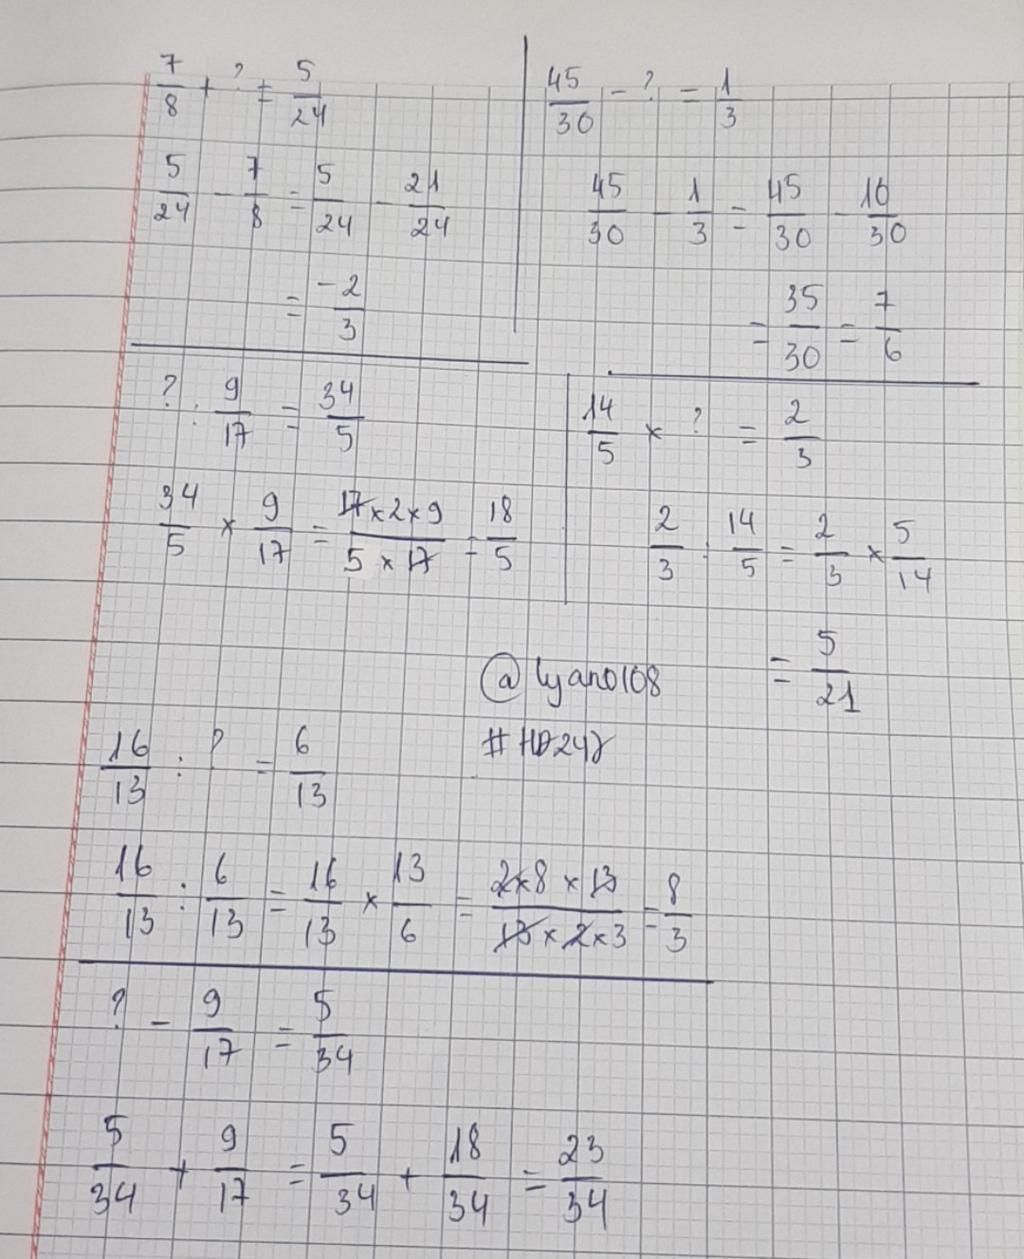 7/8 + ? = 5/24
5/24 - 7/8 = 5/24 - 21/24
= -2/3
45/30 - ? = 1/3
45/30 - 1/3 = 45/30 - 10/30
= 35/30 = 7/6
? : 9/17 = 34/5
34/5 × 9/17 = 17×2×9/5×17 = 18/5
14/5 × ? = 2/3
2/3 : 14/5 = 2/3 × 5/14
= 5/21
@lyano108
#HD247
16/13 : ? = 6/13
16/13 : 6/13 = 16/13 × 13/6 = 2×8×13/13×2×3 = 8/3
? - 9/17 = 5/34
5/34 + 9/17 = 5/34 + 18/34 = 23/34